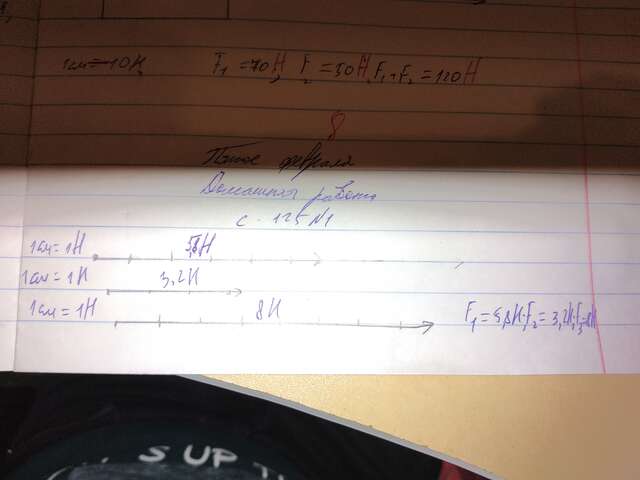 1см=10Н F₁=70Н, F₂=50Н, F₁+F₂=120Н
8
Пятое февраля
Домашняя работа
с. 125 №1
1см=1Н 5,8Н
1см=1Н 3,2Н
1см=1Н 8Н F₁=5,8Н; F₂=3,2Н; F₃=8Н
S UP